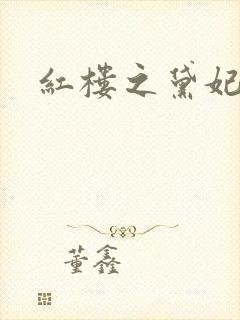 紅樓之黛妃
董鑫